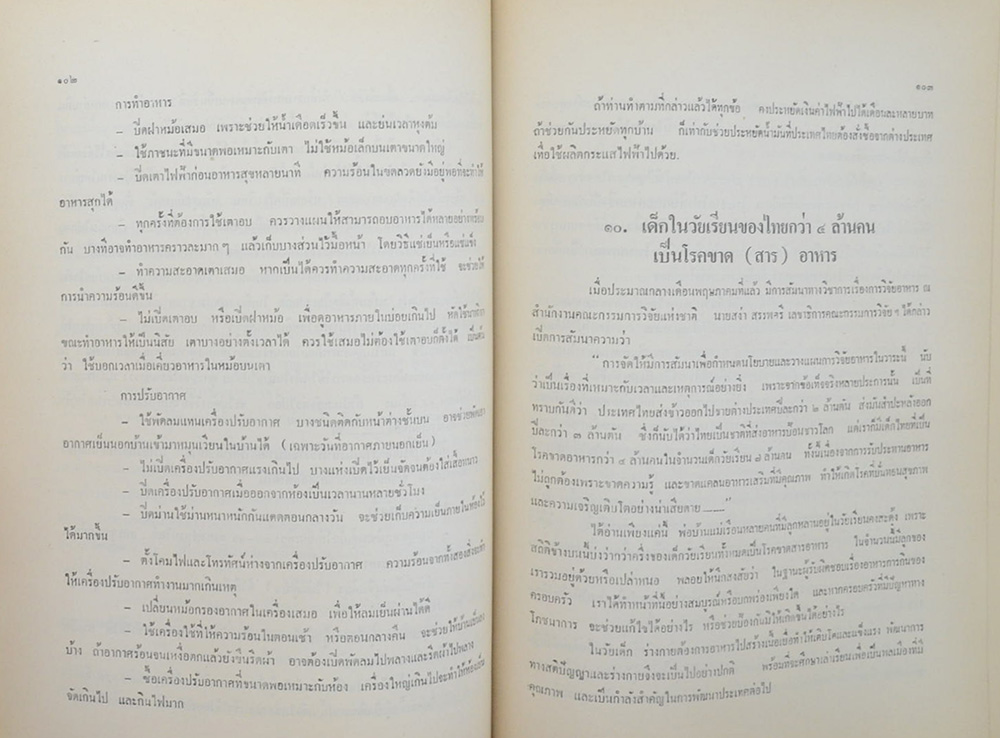 ๑๐๒
การทำอาหาร
– ปิดฝาหม้อเสมอ เพราะช่วยให้น้ำเดือดเร็วขึ้น และย่นเวลาหุงต้ม
– ใช้ภาชนะที่มีขนาดพอเหมาะกับเตา ไม่ใช้หม้อเล็กบนเตาขนาดใหญ่
– ปิดเตาไฟฟ้าก่อนอาหารสุขหลายนาที ความร้อนในขดลวดยังมีอยู่พอที่จะทำให้
อาหารสุกได้
– ทุกครั้งที่ต้องการใช้เตาอบ ควรวางแผนให้สามารถอบอาหารได้หลายอย่างพร้อม
กัน บางทีอาจทำอาหารคราวละมาก ๆ แล้วเก็บบางส่วนไว้มื้อหน้า โดยวิธีแช่เย็นหรือแช่แข็ง
– ทำความสะอาดเตาเสมอ หากเป็นได้ควรทำความสะอาดทุกครั้งที่ใช้ จะช่วยให้
การนำความร้อนดีขึ้น
– ไม่เปิดเตาอบ หรือเปิดฝาหม้อ เพื่อดูอาหารภายในบ่อยเกินไป หัดใช้นาฬิกา
ขณะทำอาหารให้เป็นนิสัย เตาบางอย่างตั้งเวลาได้ ควรใช้เสมอไม่ต้องใช้เตาอบก็ตั้งได้ เป็นต้น
ว่า ใช้บอกเวลาเมื่อเคี่ยวอาหารในหม้อบนเตา
การปรับอากาศ
– ใช้พัดลมแทนเครื่องปรับอากาศ บางชนิดติดกับหน้าต่างชั้นบน อาจช่วยพัดเอา
อากาศเย็นนอกบ้านเข้ามาหมุนเวียนในบ้านได้ (เฉพาะวันที่อากาศภายนอกเย็น)
– ไม่เปิดเครื่องปรับอากาศแรงเกินไป บางแห่งเปิดไว้เย็นจัดจนต้องใส่เสื้อหนาว
– ปิดเครื่องปรับอากาศเมื่อออกจากห้องเป็นเวลานานหลายชั่วโมง
– ปิดม่านใช้ม่านหนาหนักกันแดดตอนกลางวัน จะช่วยเก็บความเย็นภายในห้องไว้
ได้มากขึ้น
– ตั้งโคมไฟและโทรทัศน์ห่างจากเครื่องปรับอากาศ ความร้อนจากทั้งสองสิ่งจะทำ
ให้เครื่องปรับอากาศทำงานมากเกินเหตุ
– เปลี่ยนหม้อกรองอากาศในเครื่องเสมอ เพื่อให้ลมเย็นผ่านได้ดี
– ใช้เครื่องใช้ที่ให้ความร้อนในตอนเช้า หรือตอนกลางคืน จะช่วยให้บ้านเย็นลง
บ้าง ถ้าอากาศร้อนจนเหงื่อตกแล้วยังขืนรีดผ้า อาจต้องเปิดพัดลมไปพลางและรีดผ้าไปพลาง
– ซื้อเครื่องปรับอากาศที่ขนาดพอเหมาะกับห้อง เครื่องใหญ่เกินไปจะทำให้ห้องเย็น
จัดเกินไป และกินไฟมาก
๑๐๓
ถ้าท่านทำตามที่กล่าวแล้วได้ทุกข้อ คงประหยัดเงินค่าไฟฟ้าไปได้เดือนละหลายบาท
ถ้าช่วยกันประหยัดทุกบ้าน ก็เท่ากับช่วยประหยัดน้ำมันที่ประเทศไทยต้องสั่งซื้อจากต่างประเทศ
เพื่อใช้ผลิตกระแสไฟฟ้าไปด้วย.
๑๐. เด็กในวัยเรียนของไทยกว่า ๔ ล้านคน
เป็นโรคขาด (สาร) อาหาร
เมื่อประมาณกลางเดือนพฤษภาคมที่แล้ว มีการสัมนาทางวิชาการเรื่องการวิจัยอาหาร ณ
สำนักงานคณะกรรมการวิจัยแห่งชาติ นายสง่า สรรพศรี เลขาธิการคณะกรรมการวิจัย ฯ ได้กล่าว
เปิดการสัมนาความว่า
“การจัดให้มีการสัมนาเพื่อกำหนดนโยบายและวางแผนการวิจัยอาหารในวาระนี้ นับ
ว่าเป็นเรื่องที่เหมาะกับเวลาและเหตุการณ์อย่างยิ่ง เพราะจากข้อเท็จจริงหลายประการนั้น เป็นที่
ทราบกันดีว่า ประเทศไทยส่งข้าวออกไปขายต่างประเทศปีละกว่า ๒ ล้านตัน ส่งมันสำปะหลังออก
ปีละกว่า ๓ ล้านตัน ซึ่งก็นับได้ว่าไทยเป็นชาติที่ส่งอาหารป้อนชาวโลก แต่เราก็มีเด็กไทยที่เป็น
โรคขาดอาหารกว่า ๔ ล้านคนในจำนวนเด็กวัยเรียน ๗ ล้านคน ทั้งนี้เนื่องจากการรับประทานอาหาร
ไม่ถูกต้องเพราะขาดความรู้ และขาดแคลนอาหารเสริมที่มีคุณภาพ ทำให้เกิดโรคที่บั่นทอนสุขภาพ
และความเจริญเติบโตอย่างน่าเสียดาย ......”
ได้อ่านเพียงแค่นี้ พ่อบ้านแม่เรือนหลายคนที่มีลูกหลานอยู่ในวัยเรียนคงสะดุ้ง เพราะ
สถิติข้างบนนี้บ่งว่ากว่าครึ่งของเด็กวัยเรียนทั้งหมดเป็นโรคขาดสารอาหาร ในจำนวนนี้มีลูกของ
เรารวมอยู่ด้วยหรือเปล่าหนอ พลอยให้นึกสงสัยว่า ในฐานะผู้รับผิดชอบเรื่องอาหารการกินของ
ครอบครัว เราได้ทำหน้าที่นี้อย่างสมบูรณ์หรือบกพร่องเพียงใด และหากครอบครัวมีปัญหาทาง
โภชนาการ จะช่วยแก้ไขได้อย่างไร หรือช่วยป้องกันมิให้เกิดขึ้นได้อย่างไร
ในวัยเด็ก ร่างกายต้องการอาหารไปสร้างเนื้อเยื่อทำให้เติบโตและแข็งแรง พัฒนาการ
ทางสติปัญญาและร่างกายจึงจะเป็นไปอย่างปกติ พร้อมที่จะศึกษาเล่าเรียนเพื่อเป็นพลเมืองที่มี
คุณภาพ และเป็นกำลังสำคัญในการพัฒนาประเทศต่อไป